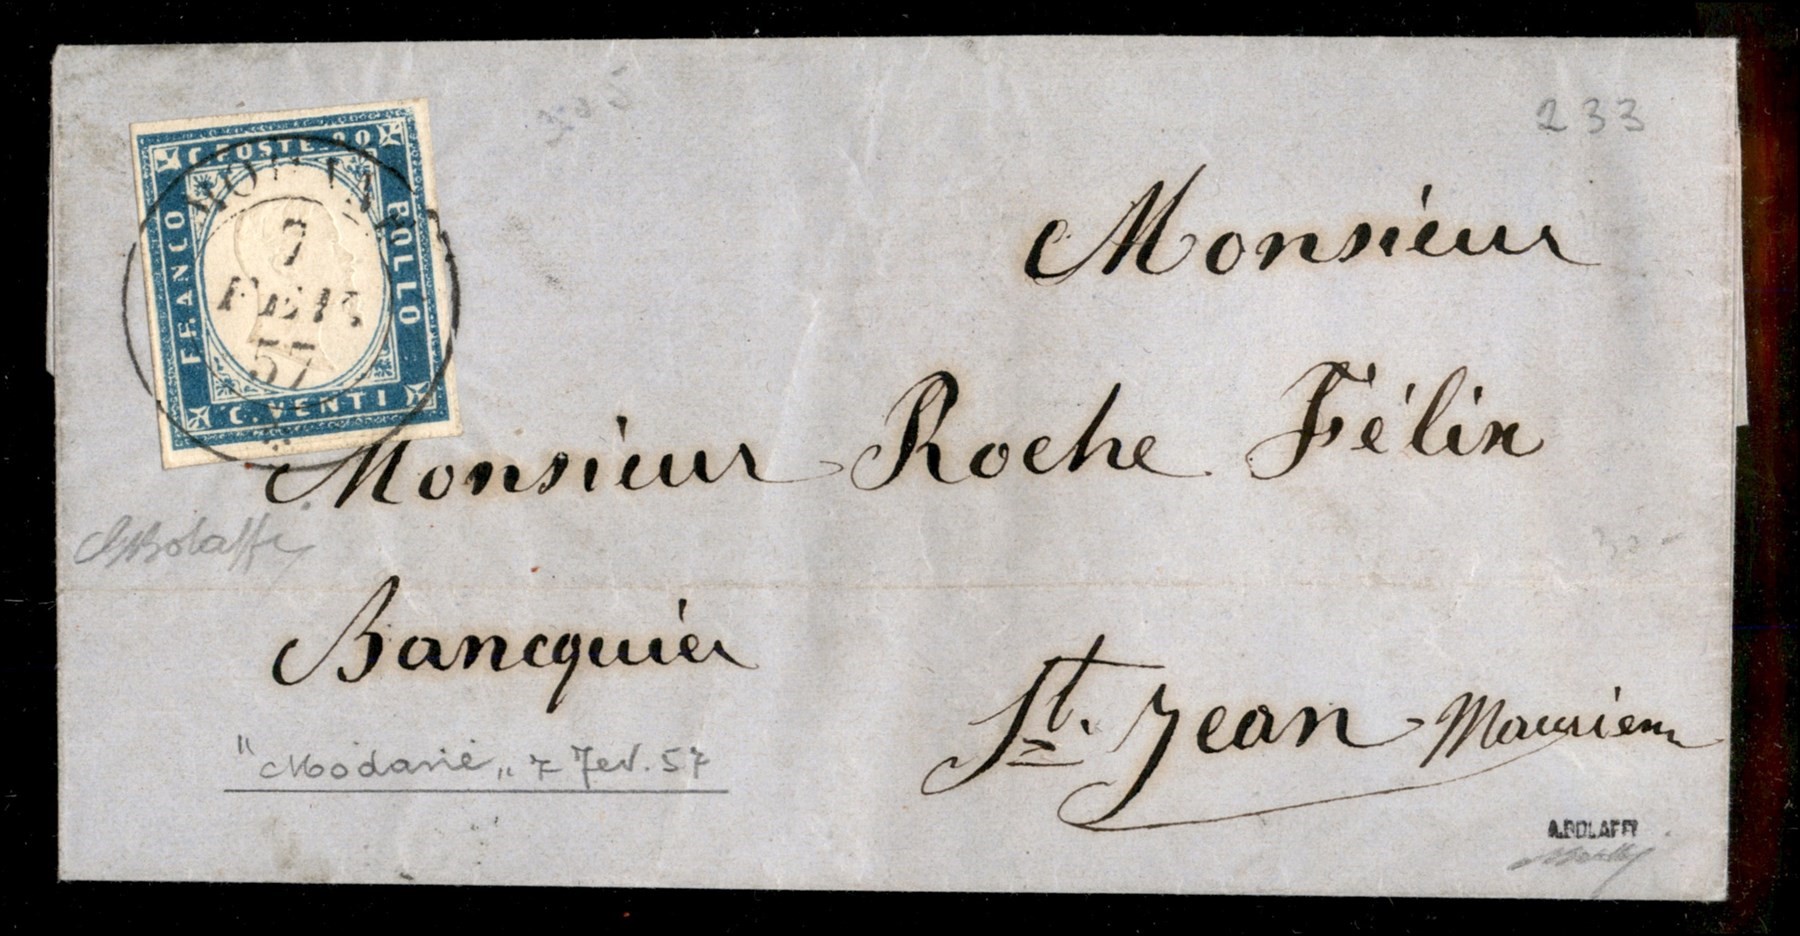 233
C. POSTE 20
FRANCO
BOLLO
C. VENTI
7
FEBR
57
Monsieur
Monsieur Roche Félix
Bolaffi
Bancquier
St. Jean Maurienne
"Modane" 7 Fev. 57
A.BOLAFFI